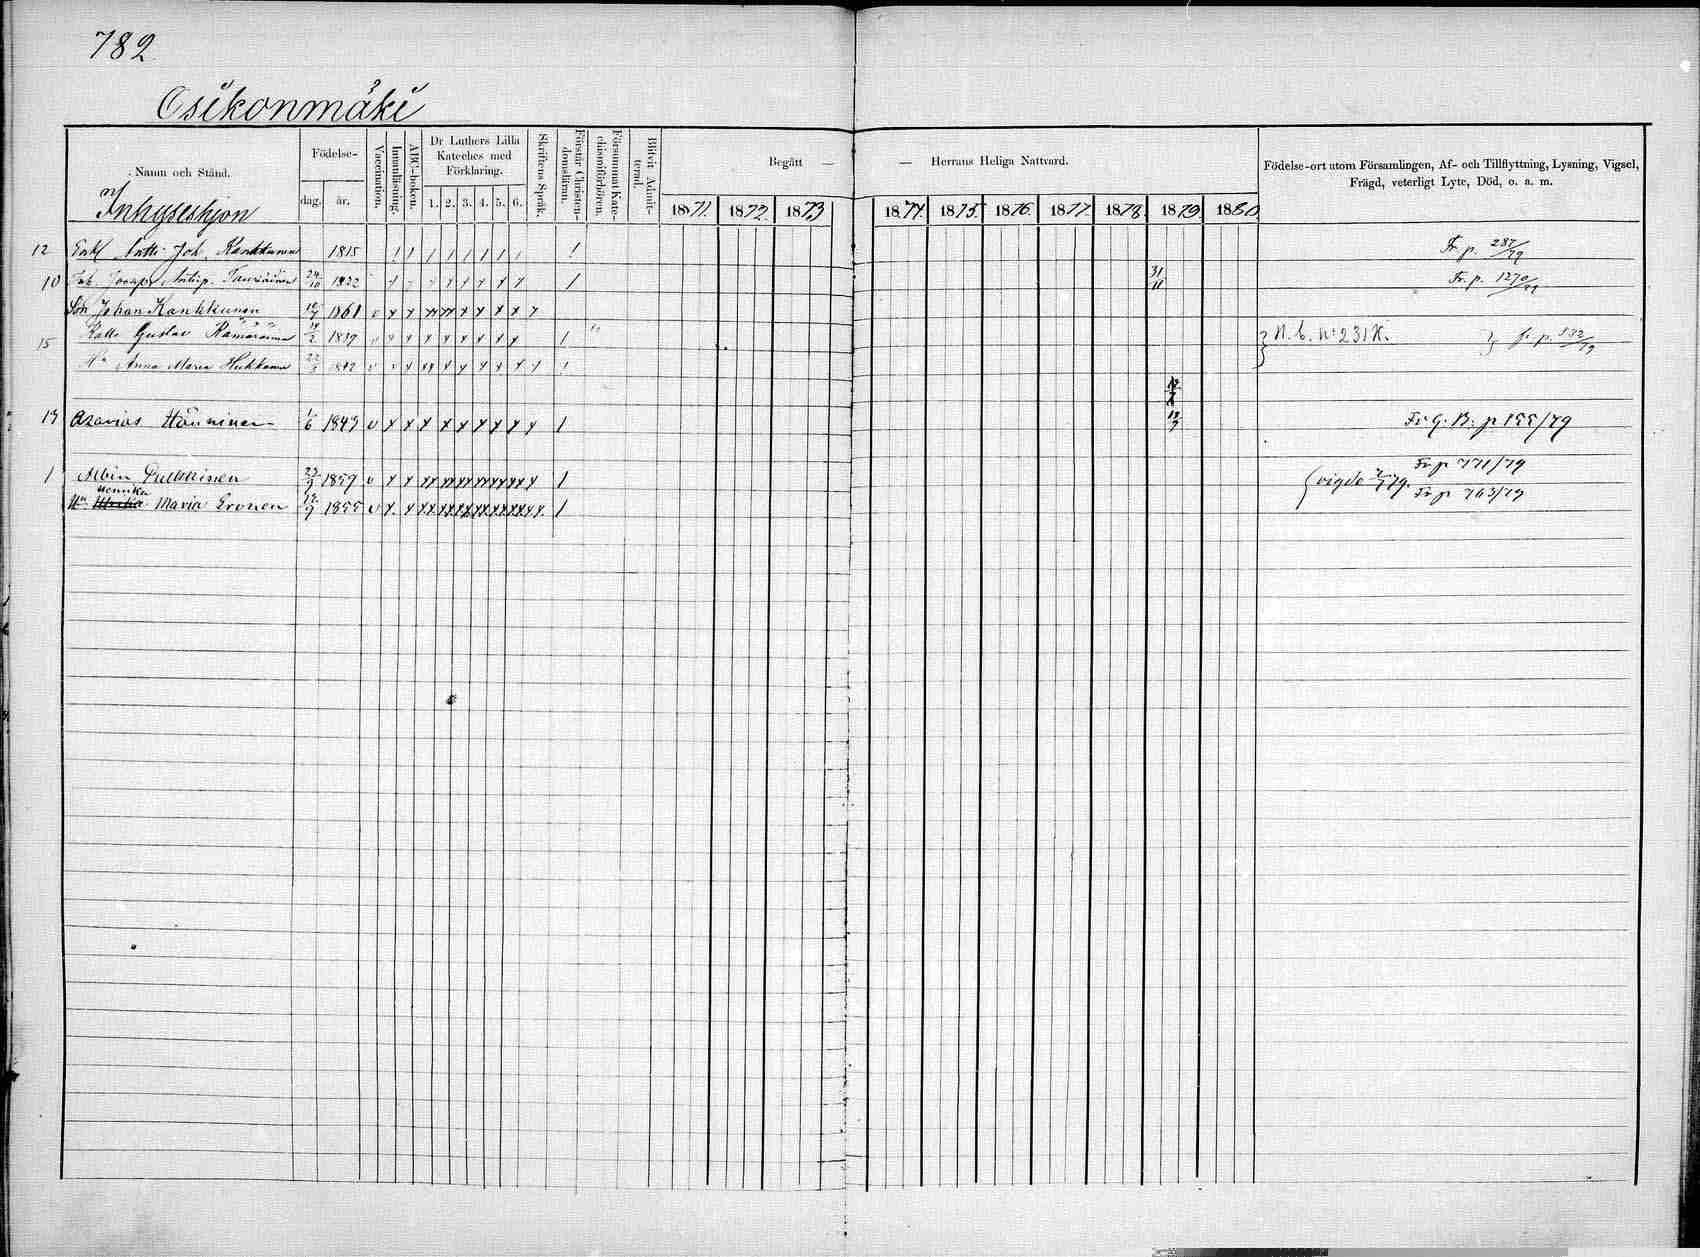 782
Osikonmäki
Namn och Stånd.
Födelse-
dag. år.
Vaccination.
Innanläsning.
ABC-boken.
Dr Luthers Lilla Kateches med Förklaring.
1. 2. 3. 4. 5. 6.
Skriftens Språk.
Förstår Christendomsläran.
Försummat Katechismiförhören.
Blifvit Admitterad.
Begått — — Herrans Heliga Nattvard.
1871. 1872. 1873 1874. 1875. 1876. 1877. 1878. 1879. 1880.
Födelse-ort utom Församlingen, Af- och Tillflyttning, Lysning, Vigsel,
Frägd, veterligt Lyte, Död, o. a. m.
Inhyseshjon
12 Enkl Antti Joh. Kankkunen 1815 Fr. p. 287/79
10 Inh. 24/10 1822 31/11 Fr. p. 1270/79
Son Johan Kankkunen 1861
15 Kalle Gustav Rämäräinen 1839 N. b. No 231 K.
Hu Anna Maria Hukkanen 1842
19 Asarias Hänninen 1/6 1843 Fr G. B: p 155/79
1 Albin Pulkkinen 1859 Fr p 771/79
vigde
Hu Henrika Maria Eronen 1855 Fr p 763/79